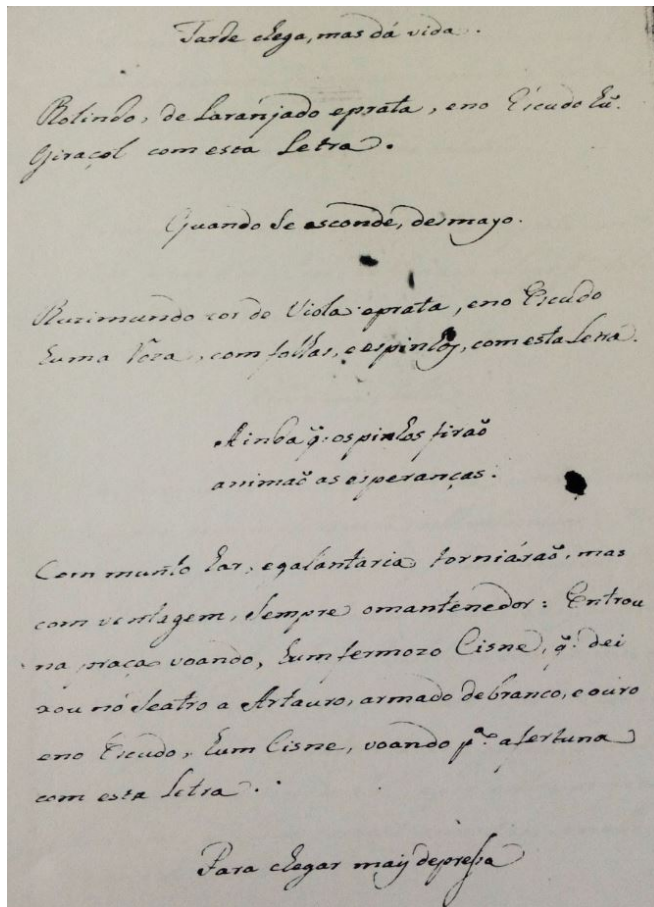 Tarde chega, mas dá vida.
Rolindo, de Laranjado eprata, eno Escudo hũ.
Giraçol com esta Letra.
Quando se esconde, desmayo.
cor de Viola eprata, eno Escudo
huma Roza, com folhas, eespinhos, comesta Letra.
Ainda q̃. ospinhos firaõ
animaõ as esperanças.
Com muito har, egalantaria torniáraõ, mas
com ventagem, sempre omantenedor: Entrou
na praça voando, hum fermozo Cisne, q̃. dei
xou nó teatro a Artauro, armado debranco, e ouro
eno Escudo, hum Cisne, voando pª. afortuna
com esta Letra.
Para chegar mais depressa